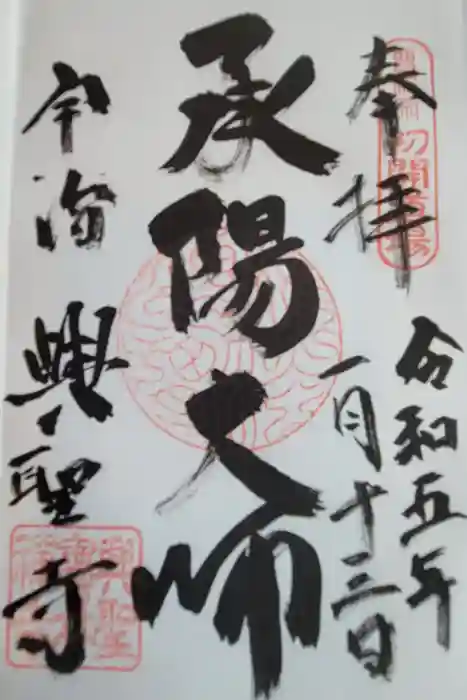 奉拝
令和五年
一月十三日
承陽大師
宇治
興聖寺